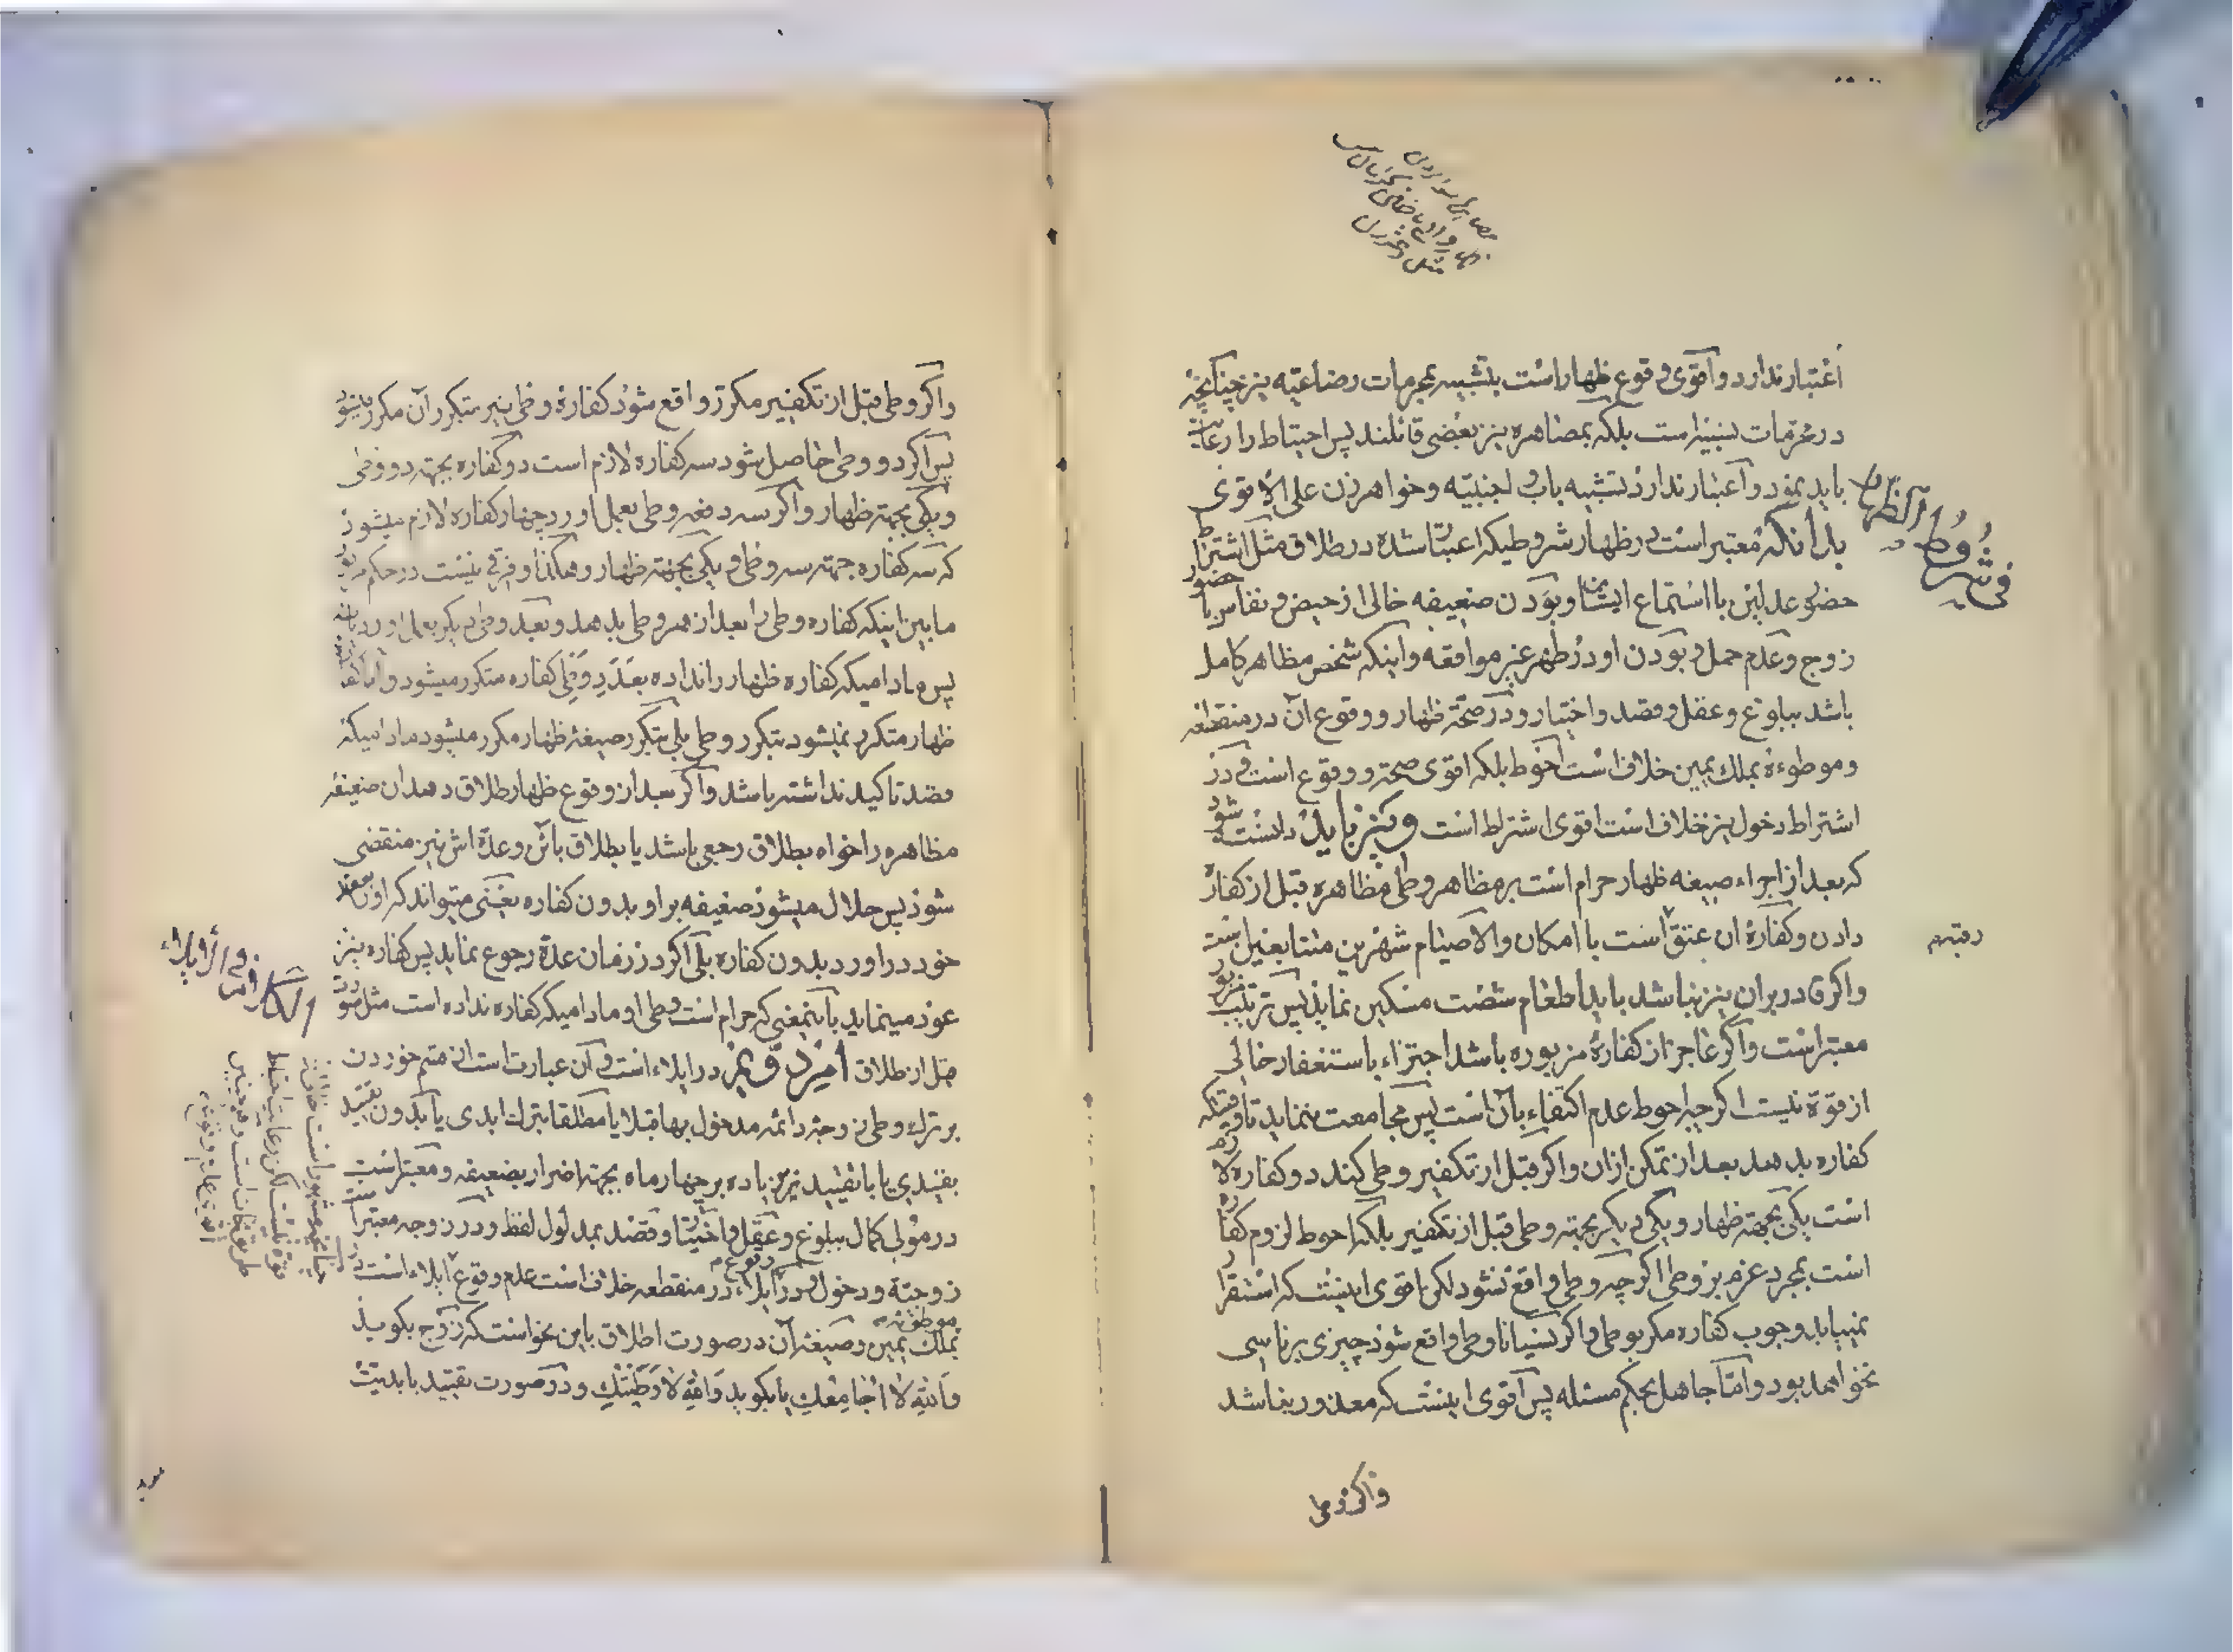 اعتبار ندارد و اقوی وقوع ظهار است بتشبیه بمحرمات رضاعیّه نیز چنانچه
در محرّمات نسبیّه است بلکه بمصاهره نیز بعضی قائلند پس احتیاط را رعایت
باید نمود و اعتبار ندارد تشبیه باب و اجنبیّه و خواهر زن علی الاقوی
فی شروط الظهار
بدانکه معتبر است در ظهار شروطیکه اعتبار شده در طلاق مثل اشتراط
حضور عدلین با استماع ایشان و بودن ضعیفه خالی از حیض و نفاس با حضور
زوج و عدم حمل و بودن او در طهر غیر مواقعه و اینکه شخص مظاهر کامل
باشد ببلوغ و عقل و قصد و اختیار و در صحّة ظهار و وقوع آن در منقطعه
و موطوءة بملک یمین خلاف است احوط بلکه اقوی صحّة و وقوع است و در
اشتراط دخول نیز خلاف است اقوی اشتراط است و نیز باید دانسته شود
که بعد از اجراء صیغه ظهار حرام است بر مظاهر وطی مظاهره قبل از کفاره
دادن و کفارۀ آن عتق است با امکان و الا صیام شهرین متتابعین است
رقبه
و اگر قادر بر آن نیز نباشد باید اطعام شصت مسکین نماید پس ترتیب مزبور
معتبر است و اگر عاجز از کفارۀ مزبوره باشد اجتزاء باستغفار خالی
از قوّة نیست اگر چه احوط عدم اکتفاء بآن است پس مجامعت ننماید تا وقتیکه
کفاره بدهد بعد از تمکن از آن و اگر قبل از تکفیر وطی کند دو کفاره لازم
است یکی بجهة ظهار و یکی دیگر بجهة وطی قبل از تکفیر بلکه احوط لزوم کفاره
است بمجرد عزم بر وطی اگر چه وطی واقع نشود لکن اقوی اینست که استقرار
نمییابد وجوب کفاره مگر بوطی و اگر نسیانا وطی واقع شود چیزی بر ناسی
نخواهد بود و امّا جاهل بحکم مسئله پس اقوی اینست که معذور نباشد
و اگر وطی
و اگر وطی قبل از تکفیر مکرّر واقع شود کفارۀ وطی نیز بتکرر آن مکرر میشود
پس اگر دو وطی حاصل شود سه کفاره لازم است دو کفاره بجهة دو وطی
و یکی بجهة ظهار و اگر سه دفعه وطی بعمل اورد چهار کفاره لازم میشود
که سه کفاره جهة سه وطی و یکی بجهة ظهار و هکذا و فرقی نیست در حکم مزبور
ما بین اینکه کفاره وطی را بعد از هر وطی بدهد و بعد وطی دیگر بعمل اورد یا نه
پس مادامیکه کفاره ظهار را نداده بعدد وطی کفاره متکرر میشود و اما کفاره
ظهار متکرر نمیشود بتکرر وطی بلی بتکرر صیغۀ ظهار مکرر میشود مادامیکه
قصد تاکید نداشته باشد و اگر بعد از وقوع ظهار طلاق دهد ان ضعیفه
مظاهره را خواه بطلاق رجعی باشد یا بطلاق بائن و عدّة اش نیز منقضی
شود پس حلال میشود ضعیفه بر او بدون کفاره یعنی میتواند که او را بعقد
خود در اورد بدون کفاره بلی اگر در زمان عدّة رجوع نماید پس کفاره نیز
عود مینماید باینمعنی که حرام است وطی او مادامیکه کفاره نداده است مثل صورت
قبل از طلاق امر دویم در ایلاء است و آن عبارت است از قسم خوردن
بر ترک وطی زوجۀ دائمه مدخول بها قبلا یا مطلقا بترک ابدی یا بدون تقیید
بقیدی یا با تقیید بزیاده بر چهار ماه بجهة اضرار بضعیفه و معتبر است
در مؤلی کمال ببلوغ و عقل و اختیار و قصد بمدلول لفظ و در زوجه معتبر است
زوجیّة و دخول و در وقوع ایلاء در منقطعه خلاف است عدم وقوع ایلاء است در
موطوئه بملک یمین و صیغۀ آن در صورت اطلاق باین نحو است که زوج بگوید
والله لا اجامعک یا بگوید والله لا وطئتک و در صورت تقیید بابدیّت